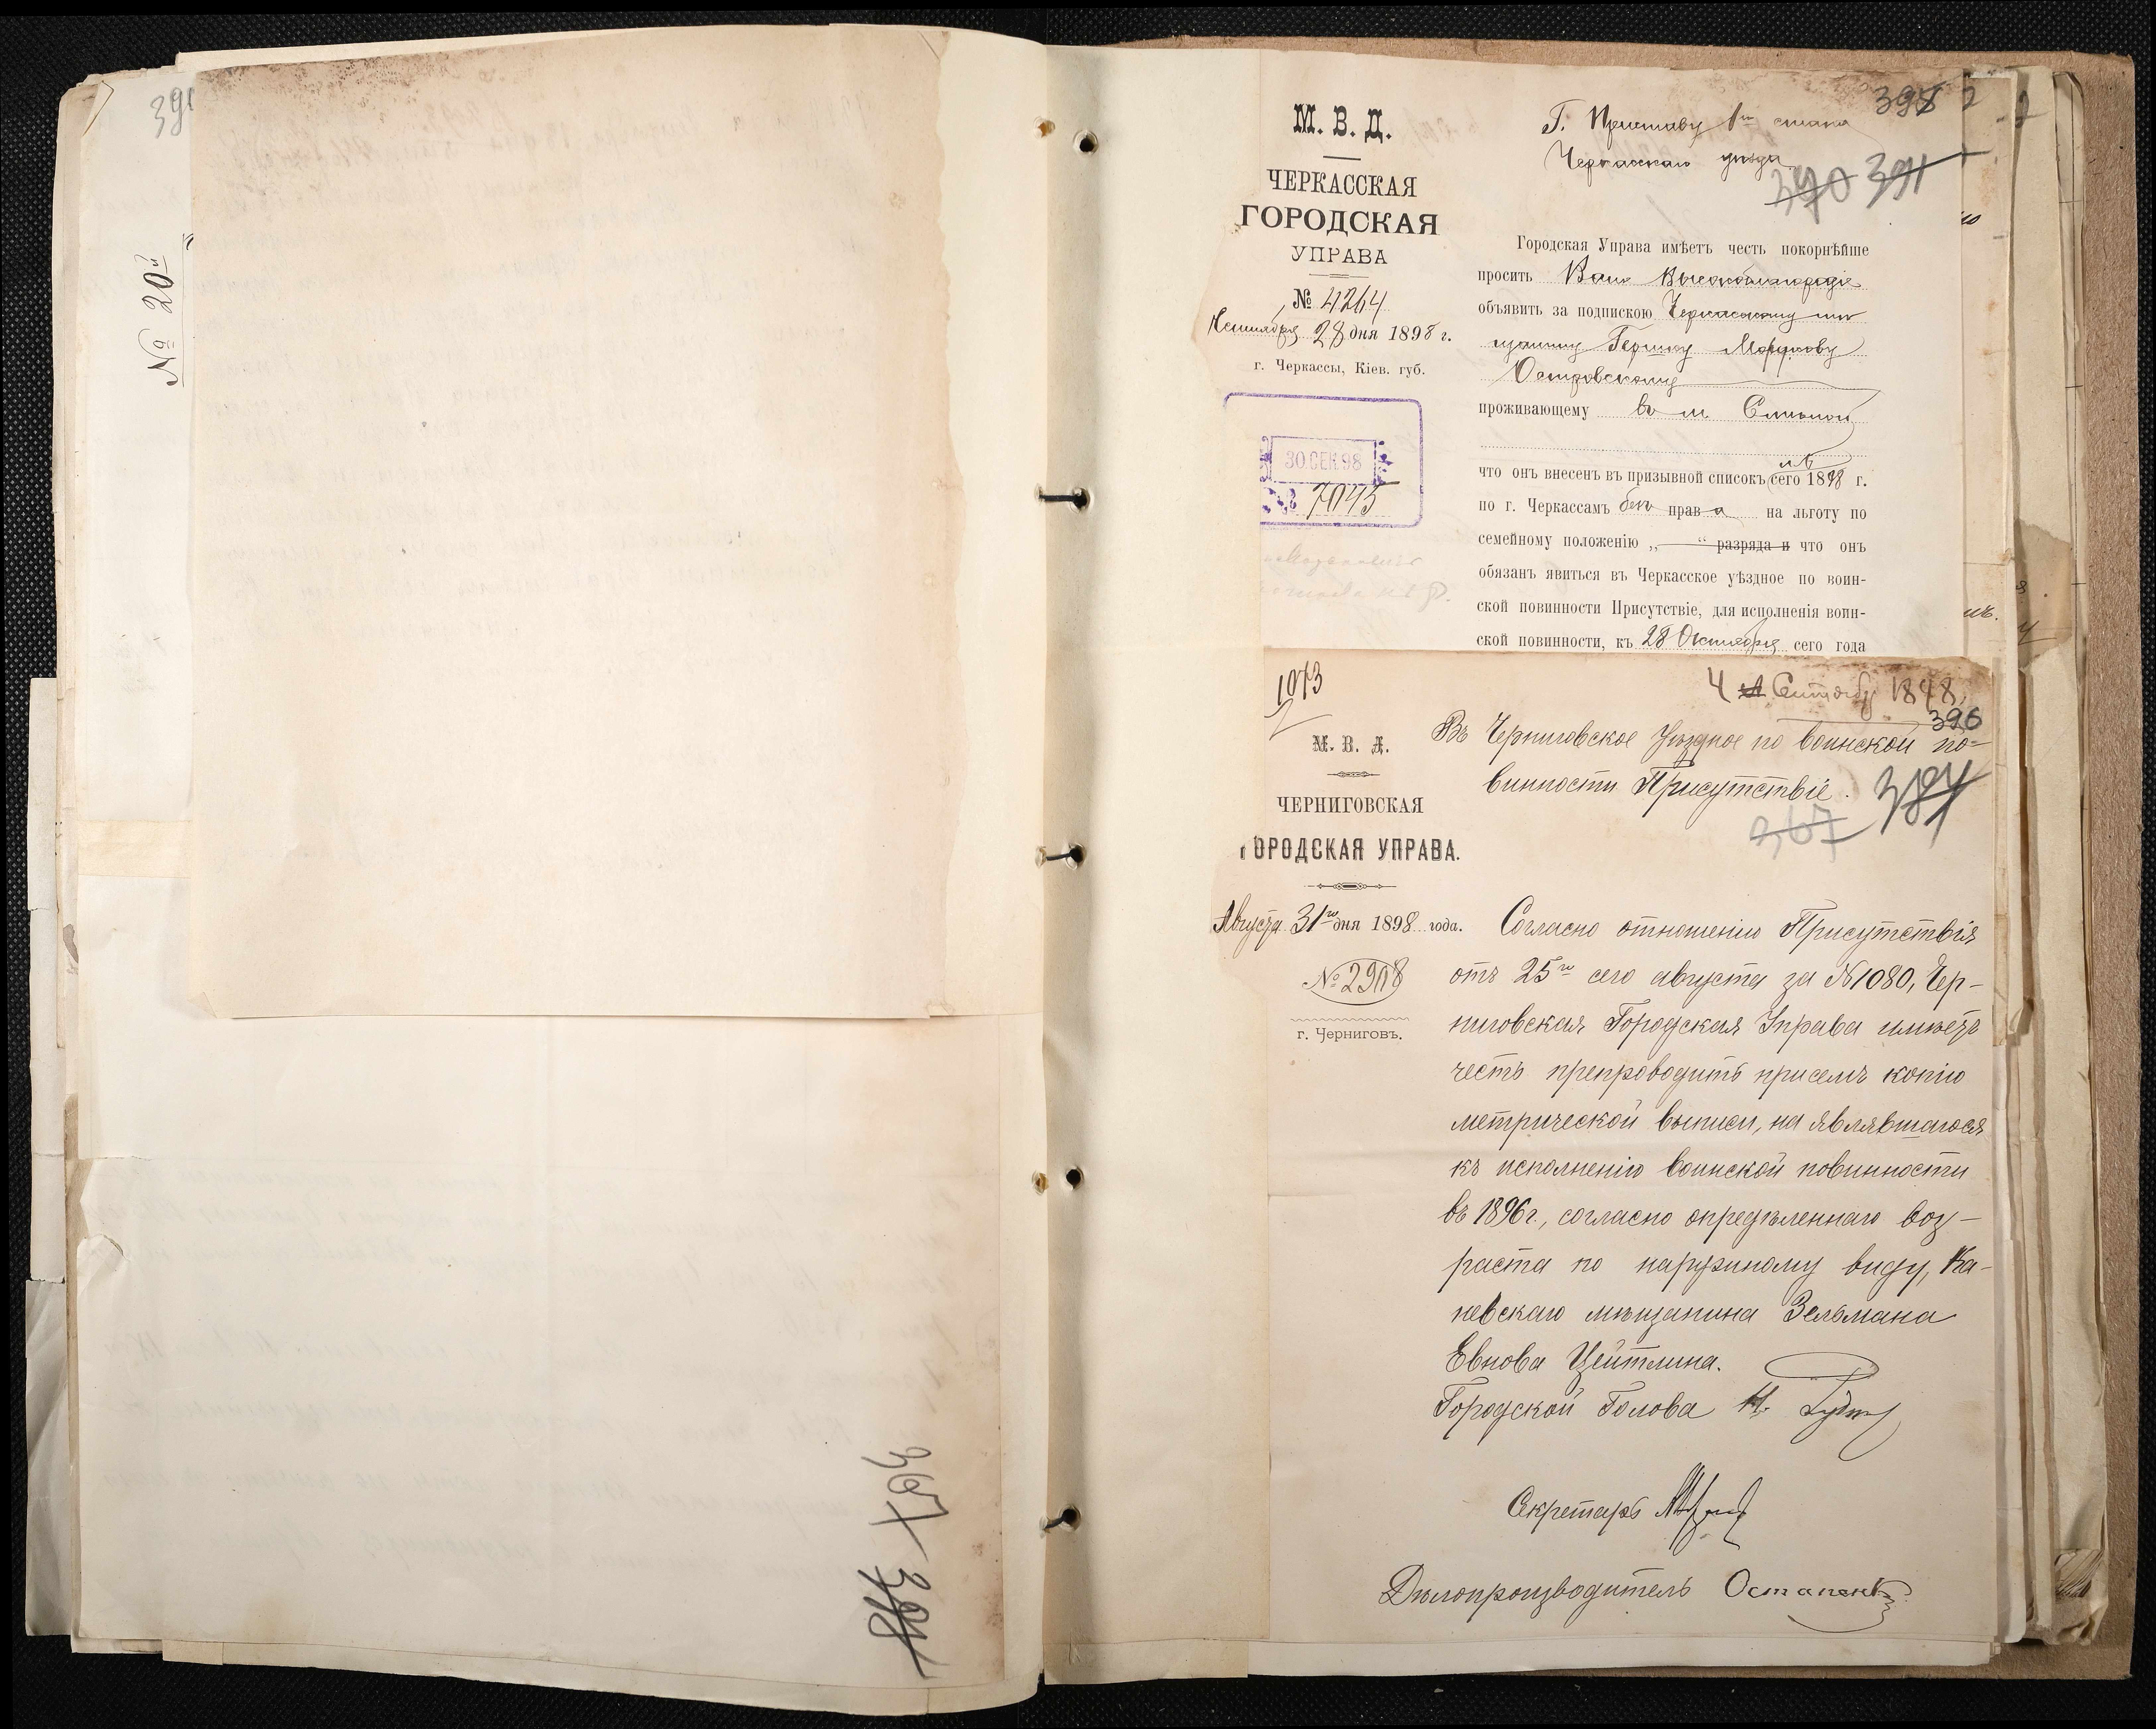 391
№ 20й
367
М. В. Д.
ЧЕРКАССКАЯ
ГОРОДСКАЯ
УПРАВА
№ 4264
28 дня 1898 г.
г. Черкассы, Кіев. губ.
30.СЕН.98
7045
Г. Приставу 1го стана
Черкасскаго уѣзда
390 391
Городская Управа имѣетъ честь покорнѣйше
просить Ваше Высокоблагородіе
объявить за подпискою Черкасскому мѣ
щанину Гершку Моржову
Островскому
проживающему въ м. Смѣлой
что онъ внесенъ въ призывной списокъ сего 1898 г.
по г. Черкассамъ безъ права на льготу по
семейному положенію „ “ разряда и что онъ
обязанъ явиться въ Черкасское уѣздное по воин-
ской повинности Присутствіе, для исполненія воин-
ской повинности, къ 28 Октября сего года
1073
4 Сентября 1898
396
М. В. Д.
ЧЕРНИГОВСКАЯ
ГОРОДСКАЯ УПРАВА.
Августа 31го дня 1898 года.
№ 2908
г. Черниговъ.
Въ Черниговское Уѣздное по воинской по=
винности Присутствіе.
367
Согласно отношенію Присутствія
отъ 25го сего августа за №1080, Чер-
ниговская Городская Управа имѣетъ
честь препроводить присемъ копію
метрической выписи, на являвшагося
къ исполненію воинской повинности
въ 1896г., согласно опредѣленнаго воз-
раста по наружному виду, Ка-
невскаго мѣщанина Зельмана
Евнова Цейтлина.
Городской Голова
Секретарь
Дѣлопроизводитель Остапенко